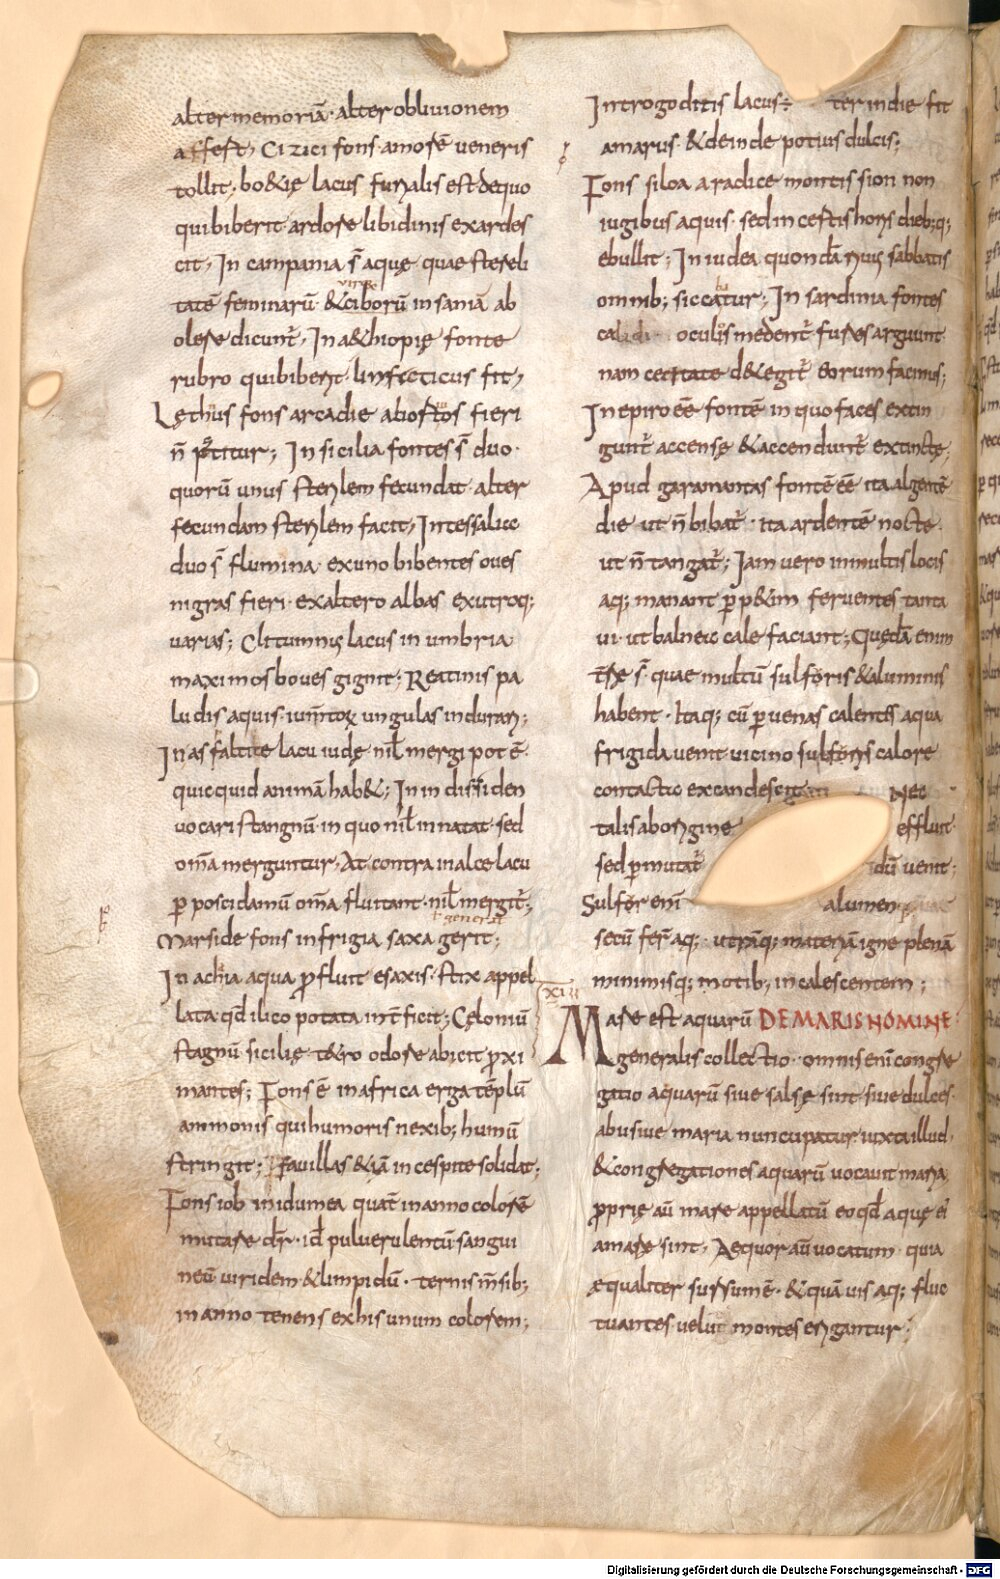 alter memoriā· alter oblivionem
affest, Cizici fons amosē veneris
tollit; bo&ię lacus furialis est dequo
quibiberit· ardose libidinis exardes
cit, In campania s̄ aquę quae stereli
tatē feminarū· &ciborū insaniā ab
olese dicunt̄, In a&hiopię fonte
rubro quibiberit· linfeticus fit,
Lęthus fons arcadię abiostos fieri
n̄ patitur; In sicilia fontes s̄ duo·
quorū unus sterilem fecundat· alter
fecundam sterilem facit, Intessalice
duo s̄ flumina· ex uno bibentes oves
nigras fieri· exaltero albas exutroq;
varias; Clitumnus lacus in umbria
maximos boves gignit; Reatinis pa
ludis aquis· ium̄torꝫ ungulas indurari;
In asfaltite lacu iudę· nil̄ mergi potē·
quicquid animā hab&; In indis siden
vocari stangnū· in quo nil̄ innatat· sed
om̄a merguntur, At contra inalce lacu
p̄ poscidamū om̄a fluitant· nil̄ mergit̄;
ł generat
Marside fons infrigia saxa gerit;
In achia aqua p̄fluit esaxis· stix appel
lata· qd̄ ilico potata int̄ficit; Cęloniū
stagnū sicilię t&ro odose abicit p̄xi
mantes; Fons ē inafrica erga tēplū
ammonis quihumoris nexib; humū
stringit; Favillas &iā in cespite solidat;
Fons iob inidumea quat̄ inanno colosē
mutase dr̄· id̄ pulverulentū sangui
neū viridem &limpidū· ternis m̄sib;
inanno tenens exhis unum colosem;
Introgoditis lacus÷ ter indie fit
amarus· &deinde potius dulcis;
Fons siloa aradice montis sion non
iugibus aquis· sed in certis horis dieb;q;
ebullit; In iudea quondā rivus sabbatis
omnib; siccatur; In sardinia fontes
calidi oculis medent̄ fures arguunt
nam cecitate d&egit̄ eorum facinus;
In epiro eē fontē in quo faces extin
gunt̄ accensę &accendunt̄ extinctę,
Apud garamantas fontē eē ita algentē
die ut n̄ bibat̄· ita ardentē nocte
ut n̄ tangat̄; Iam vero inmultis locis
aq; manant p̄p&im ferventes tanta
vi· ut balneic calefaciant; Quędā enim
t̄ræ s̄· quae multū sulforis &aluminis
habent· Itaq; cū p̄ venas calentes aqua
frigida venit vicino sulforis calore
contacto excandescit Nec
talis aborigine effluit·
sed p̄mutat̄ dū venit;
Sulfor enī alumen
secū fer̄ aq; utraq; materiā igne plenā
minimisq; motib; incalescentem;
XIII
Mare est aquarū DE MARIS NOMINE
generalis collectio· omnis enī congre
gatio aquarū sive salsę sint sive dulces
abusive maria nuncupatur iuxta illud·
&congregationes aquarū vocavit maria,
p̄prię aū mare appellatū eo qd̄ aquę ei'
amare sint, Aequor aū vocatum· quia
æqualiter sursumē· &quā vis aq; fluc
tuantes velut montes erigantur;
Digitalisierung gefördert durch die Deutsche Forschungsgemeinschaft - DFG